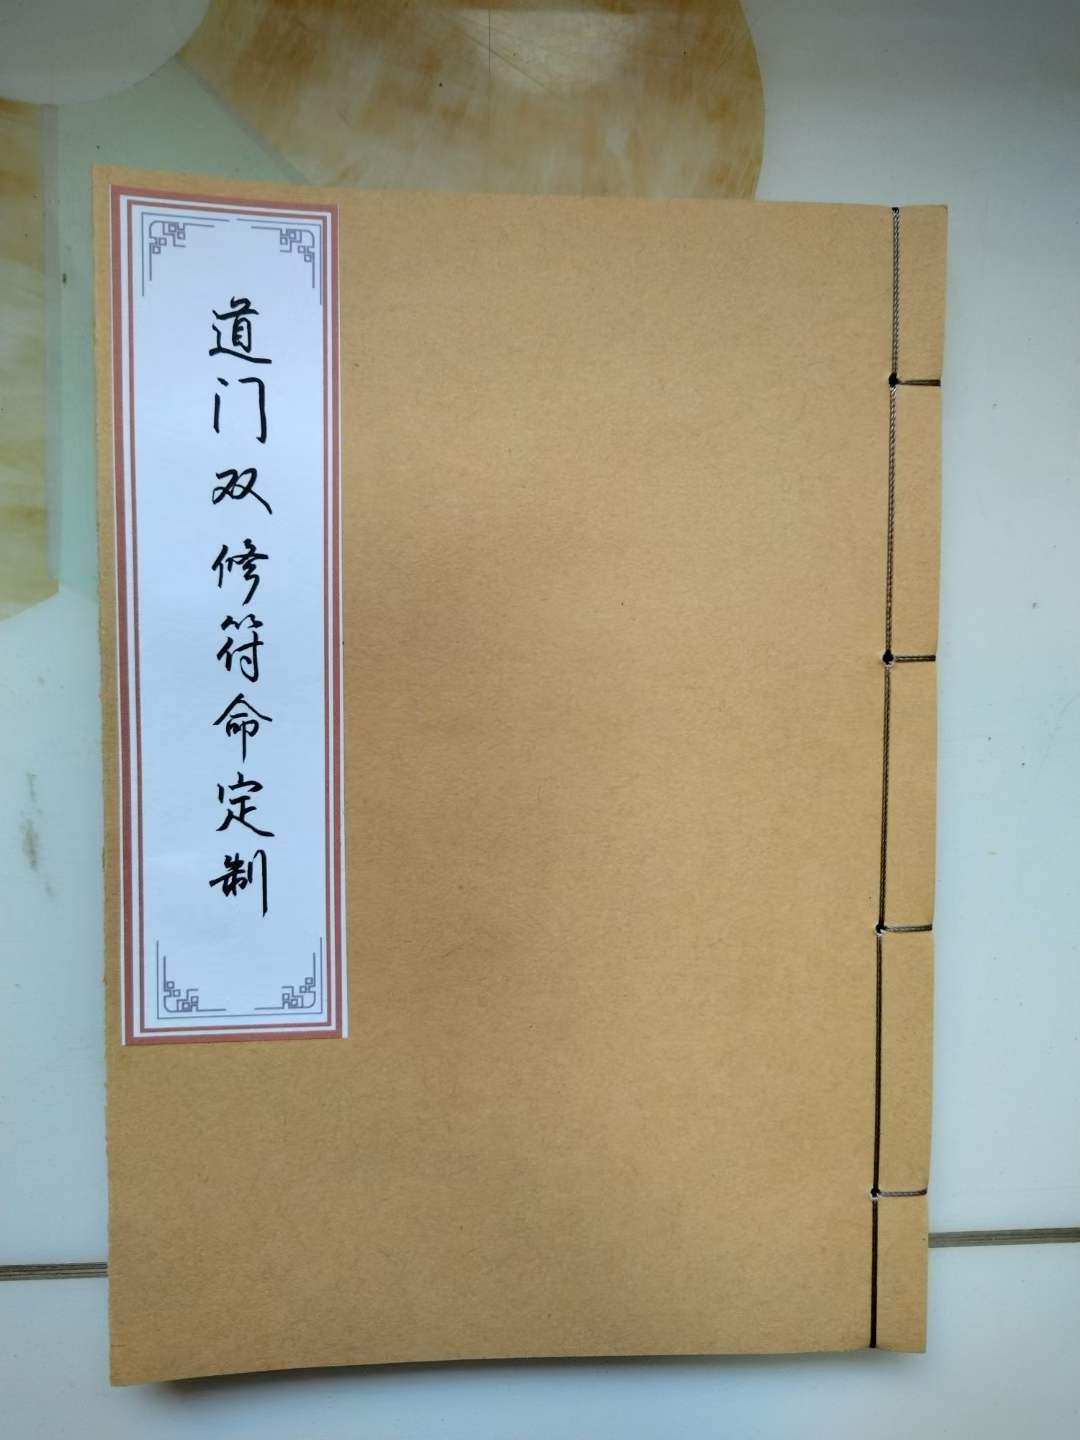 道门双修符命定制